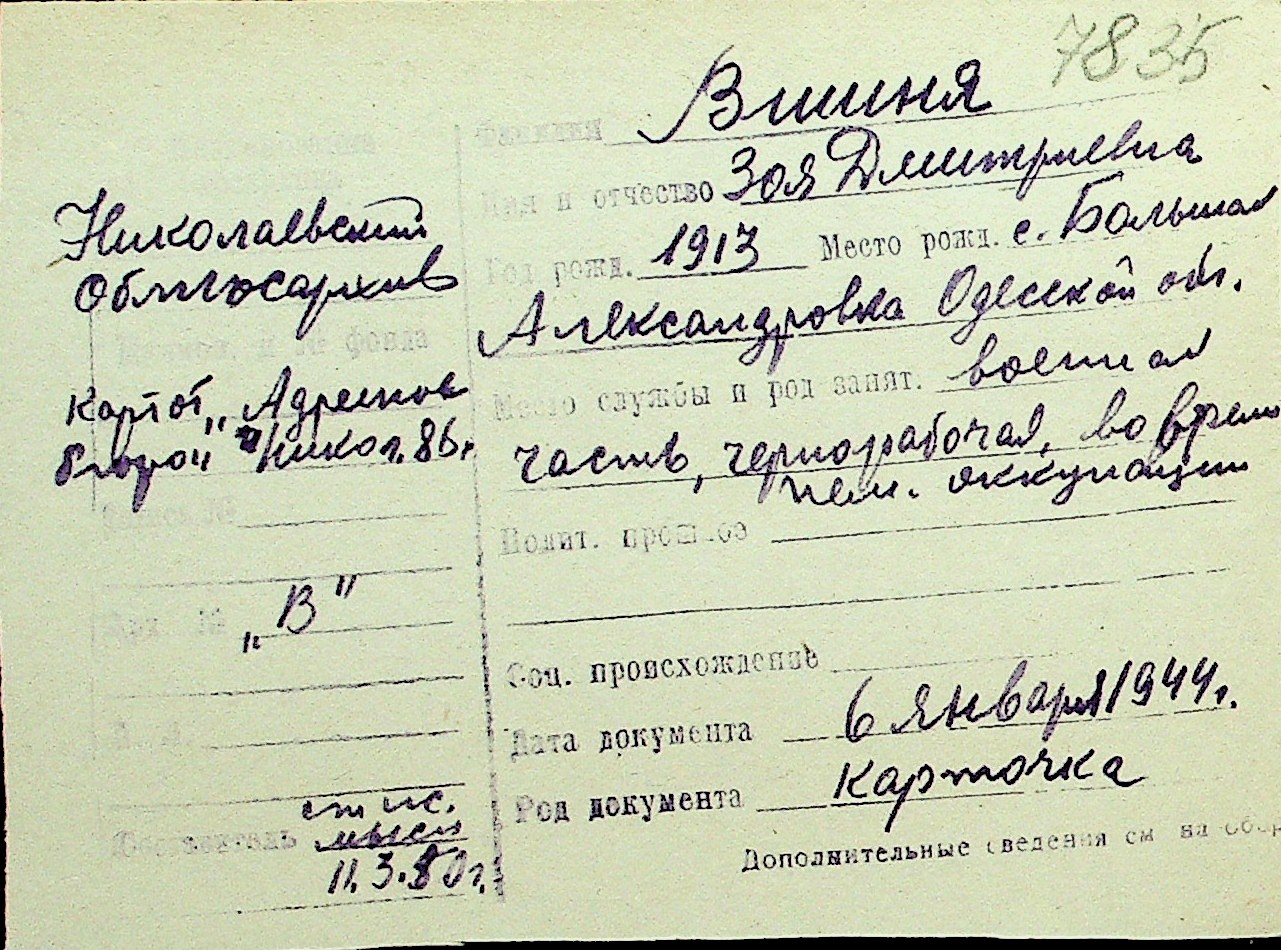 7835
Фамилия Вишня
Имя и отчество Зоя Дмитриевна
Год рожд. 1913 Место рожд. с. Большая
Александровка Одесской обл.
Место службы и род занят. военная
часть, чернорабочая, во время
нем. оккупации
Полит. прошлое
Соц. происхождение
Дата документа 6 января 1944г.
Род документа карточка
Дополнительные сведения см на обор
Николаевский
Облгосархив
и № фонда
Картот. „Адресное
бюро" г. Никол. 86.
№
Арх №
„В"
Составитель ст ис.
11.3.50г.